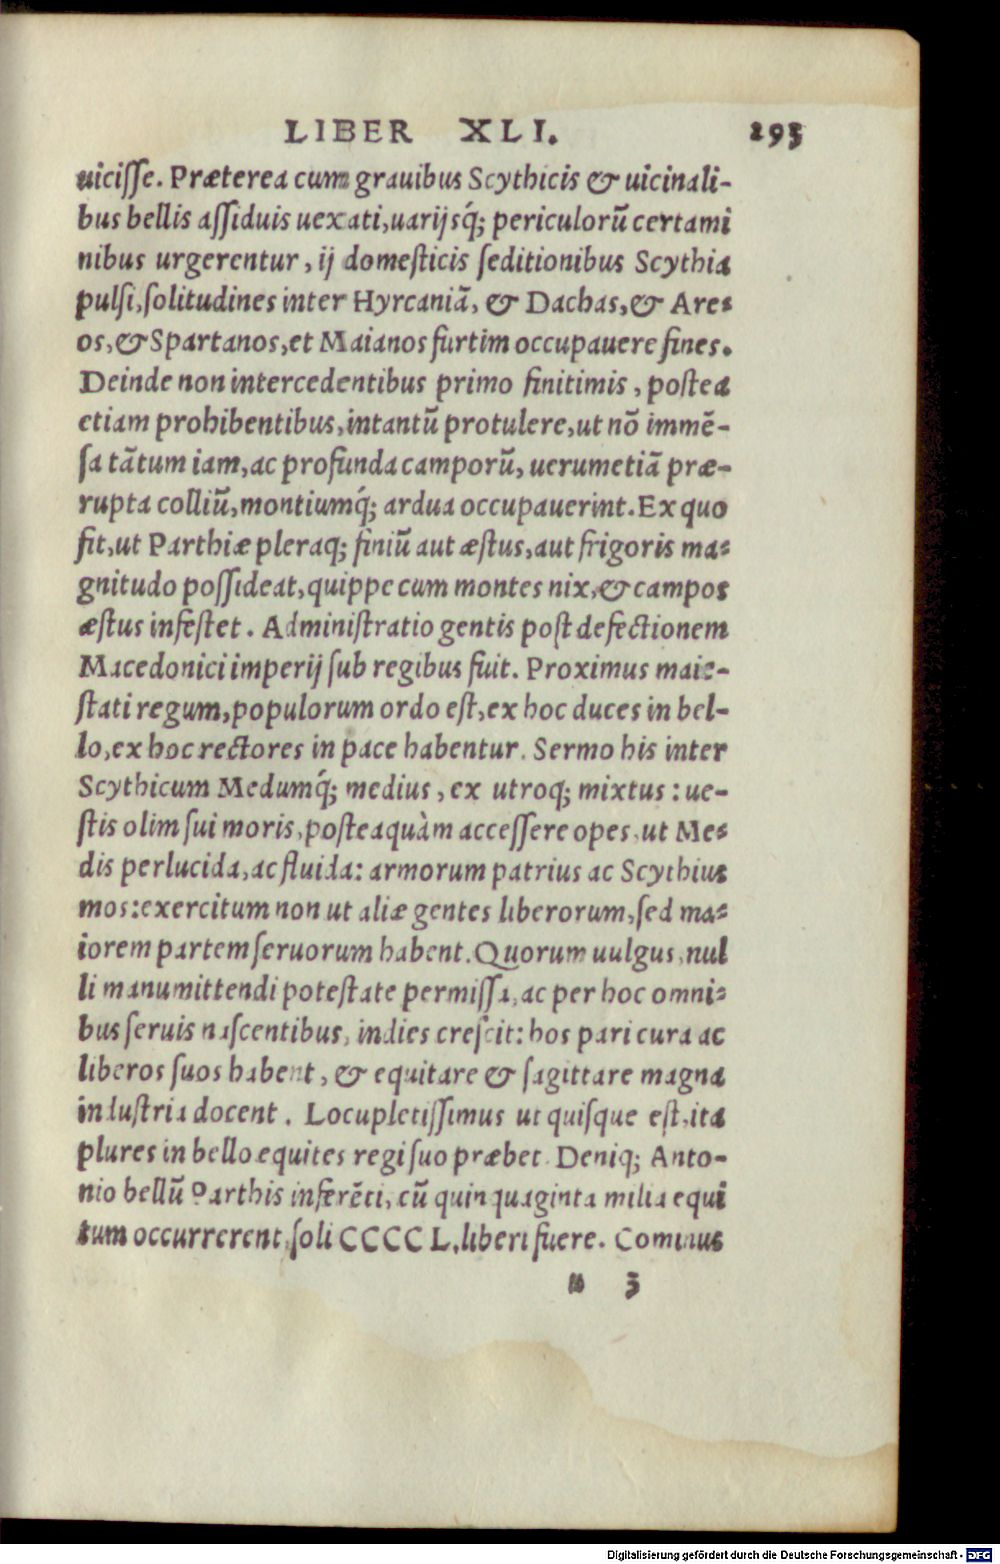 LIBER XLI. 293
uiciſſe. Præterea cum grauibus Scythicis & uicinali-
bus bellis aſſiduis uexati, uarijsq́; periculorũ certami
nibus urgerentur, ij domeſticis ſeditionibus Scythia
pulſi, ſolitudines inter Hyrcaniã, & Dachas, & Are-
os, & Spartanos, et Maianos furtim occupauere fines.
Deinde non intercedentibus primo finitimis, poſtea
etiam prohibentibus, intantũ protulere, ut nõ immẽ-
ſa tãtum iam, ac profunda camporũ, uerumetiã præ-
rupta colliũ, montiumq́; ardua occupauerint. Ex quo
fit, ut Parthiæ pleraq; finiũ aut æſtus, aut frigoris ma-
gnitudo poſſideat, quippe cum montes nix, & campos
æſtus infeſtet. Adminiſtratio gentis poſt defectionem
Macedonici imperij ſub regibus fuit. Proximus maie-
ſtati regum, populorum ordo eſt, ex hoc duces in bel-
lo, ex hoc rectores in pace habentur. Sermo his inter
Scythicum Medumq́; medius, ex utroq; mixtus: ue-
ſtis olim ſui moris, poſteaquàm acceſſere opes, ut Me-
dis perlucida, ac fluida: armorum patrius ac Scythius
mos: exercitum non ut aliæ gentes liberorum, ſed ma-
iorem partem ſeruorum habent. Quorum uulgus, nul
li manumittendi poteſtate permiſſa, ac per hoc omni-
bus ſeruis naſcentibus, indies creſcit: hos pari cura ac
liberos ſuos habent, & equitare & ſagittare magna
induſtria docent. Locupletiſſimus ut quiſque eſt, ita
plures in bello equites regi ſuo præbet. Deniq; Anto-
nio bellũ Parthis inferẽti, cũ quinquaginta milia equi
tum occurrerent, ſoli CCCC L, liberi fuere. Cominus
u 3
Digitalisierung gefördert durch die Deutsche Forschungsgemeinschaft - DFG